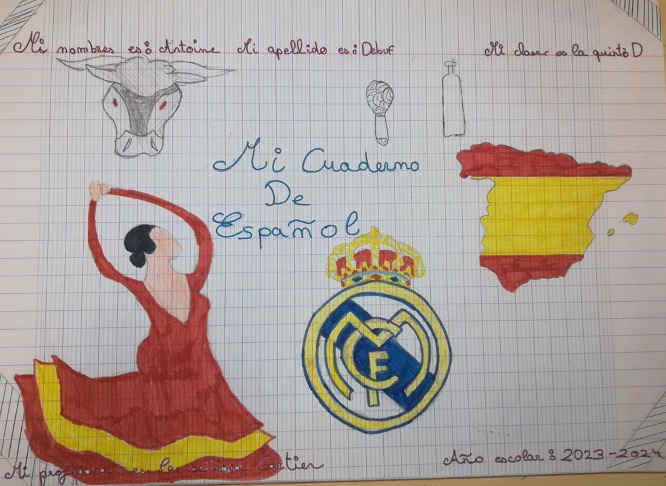 Mi nombres es: Antoine Mi apellido es: Debuf Mi clase es la quinto D
Mi Cuaderno
De
Español
MCF
Mi es la señora Cartier
Año escolar: 2023-2024